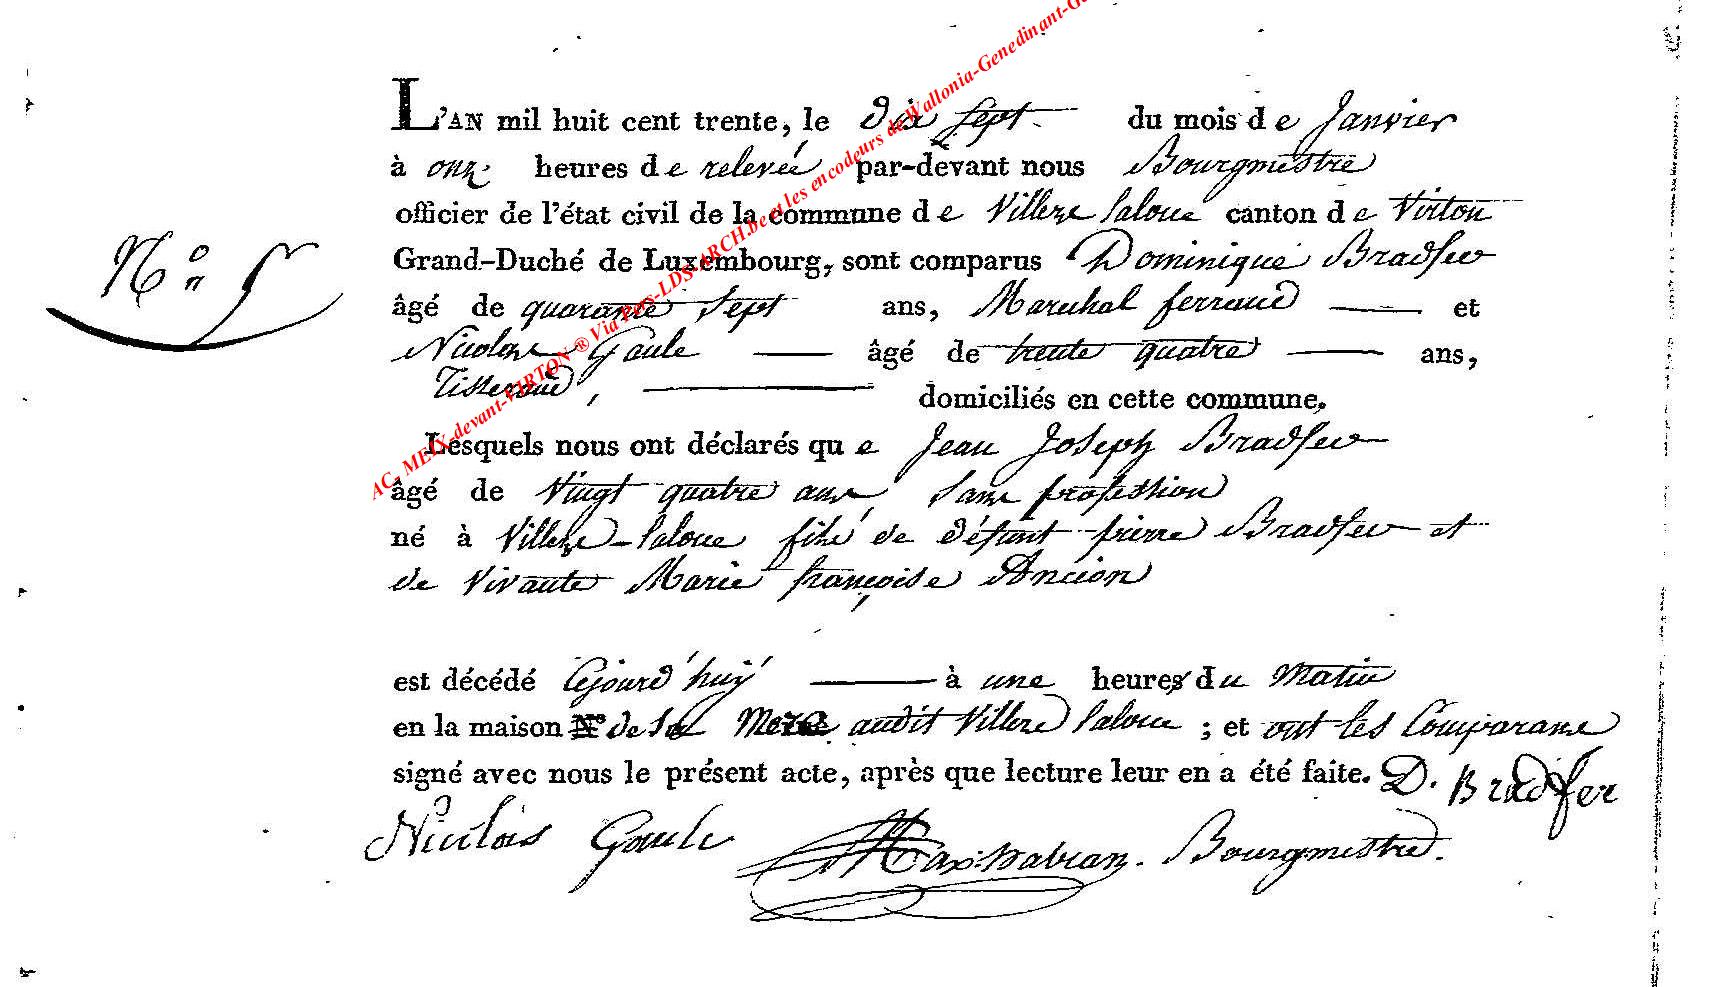 L'AN mil huit cent trente, le dix sept du mois de Janvier
à onz heures de relevée par-devant nous Bourgmestre
officier de l'état civil de la commune de Villers laloue canton de Virton
Grand-Duché de Luxembourg, sont comparus Dominique Bradfer
N.o 5
âgé de quarante sept ans, Marechal ferrand et
Nicolas Gaule âgé de trente quatre ans,
Tisserand, domiciliés en cette commune.
Lesquels nous ont déclarés que Jean Joseph Bradfer
âgé de Vingt quatre ans, sans profession
né à Villers-laloue fils de défunt pierre Bradfer et
de vivante Marie françoise Ancion
est décédé Cejourd'huy à une heures du Matin
en la maison N.o de sa Mere audit Villers laloue ; et ont les Comparans
signé avec nous le présent acte, après que lecture leur en a été faite. D. Bradfer
Nicolas Gaule Bourgmestre.
AC. MEIX-devant-VIRTON ® Via Pers-LDS-ARCH.be et les encodeurs de Wallonia-Genedinant-G